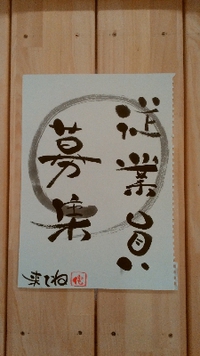 従業員
募集
来てね